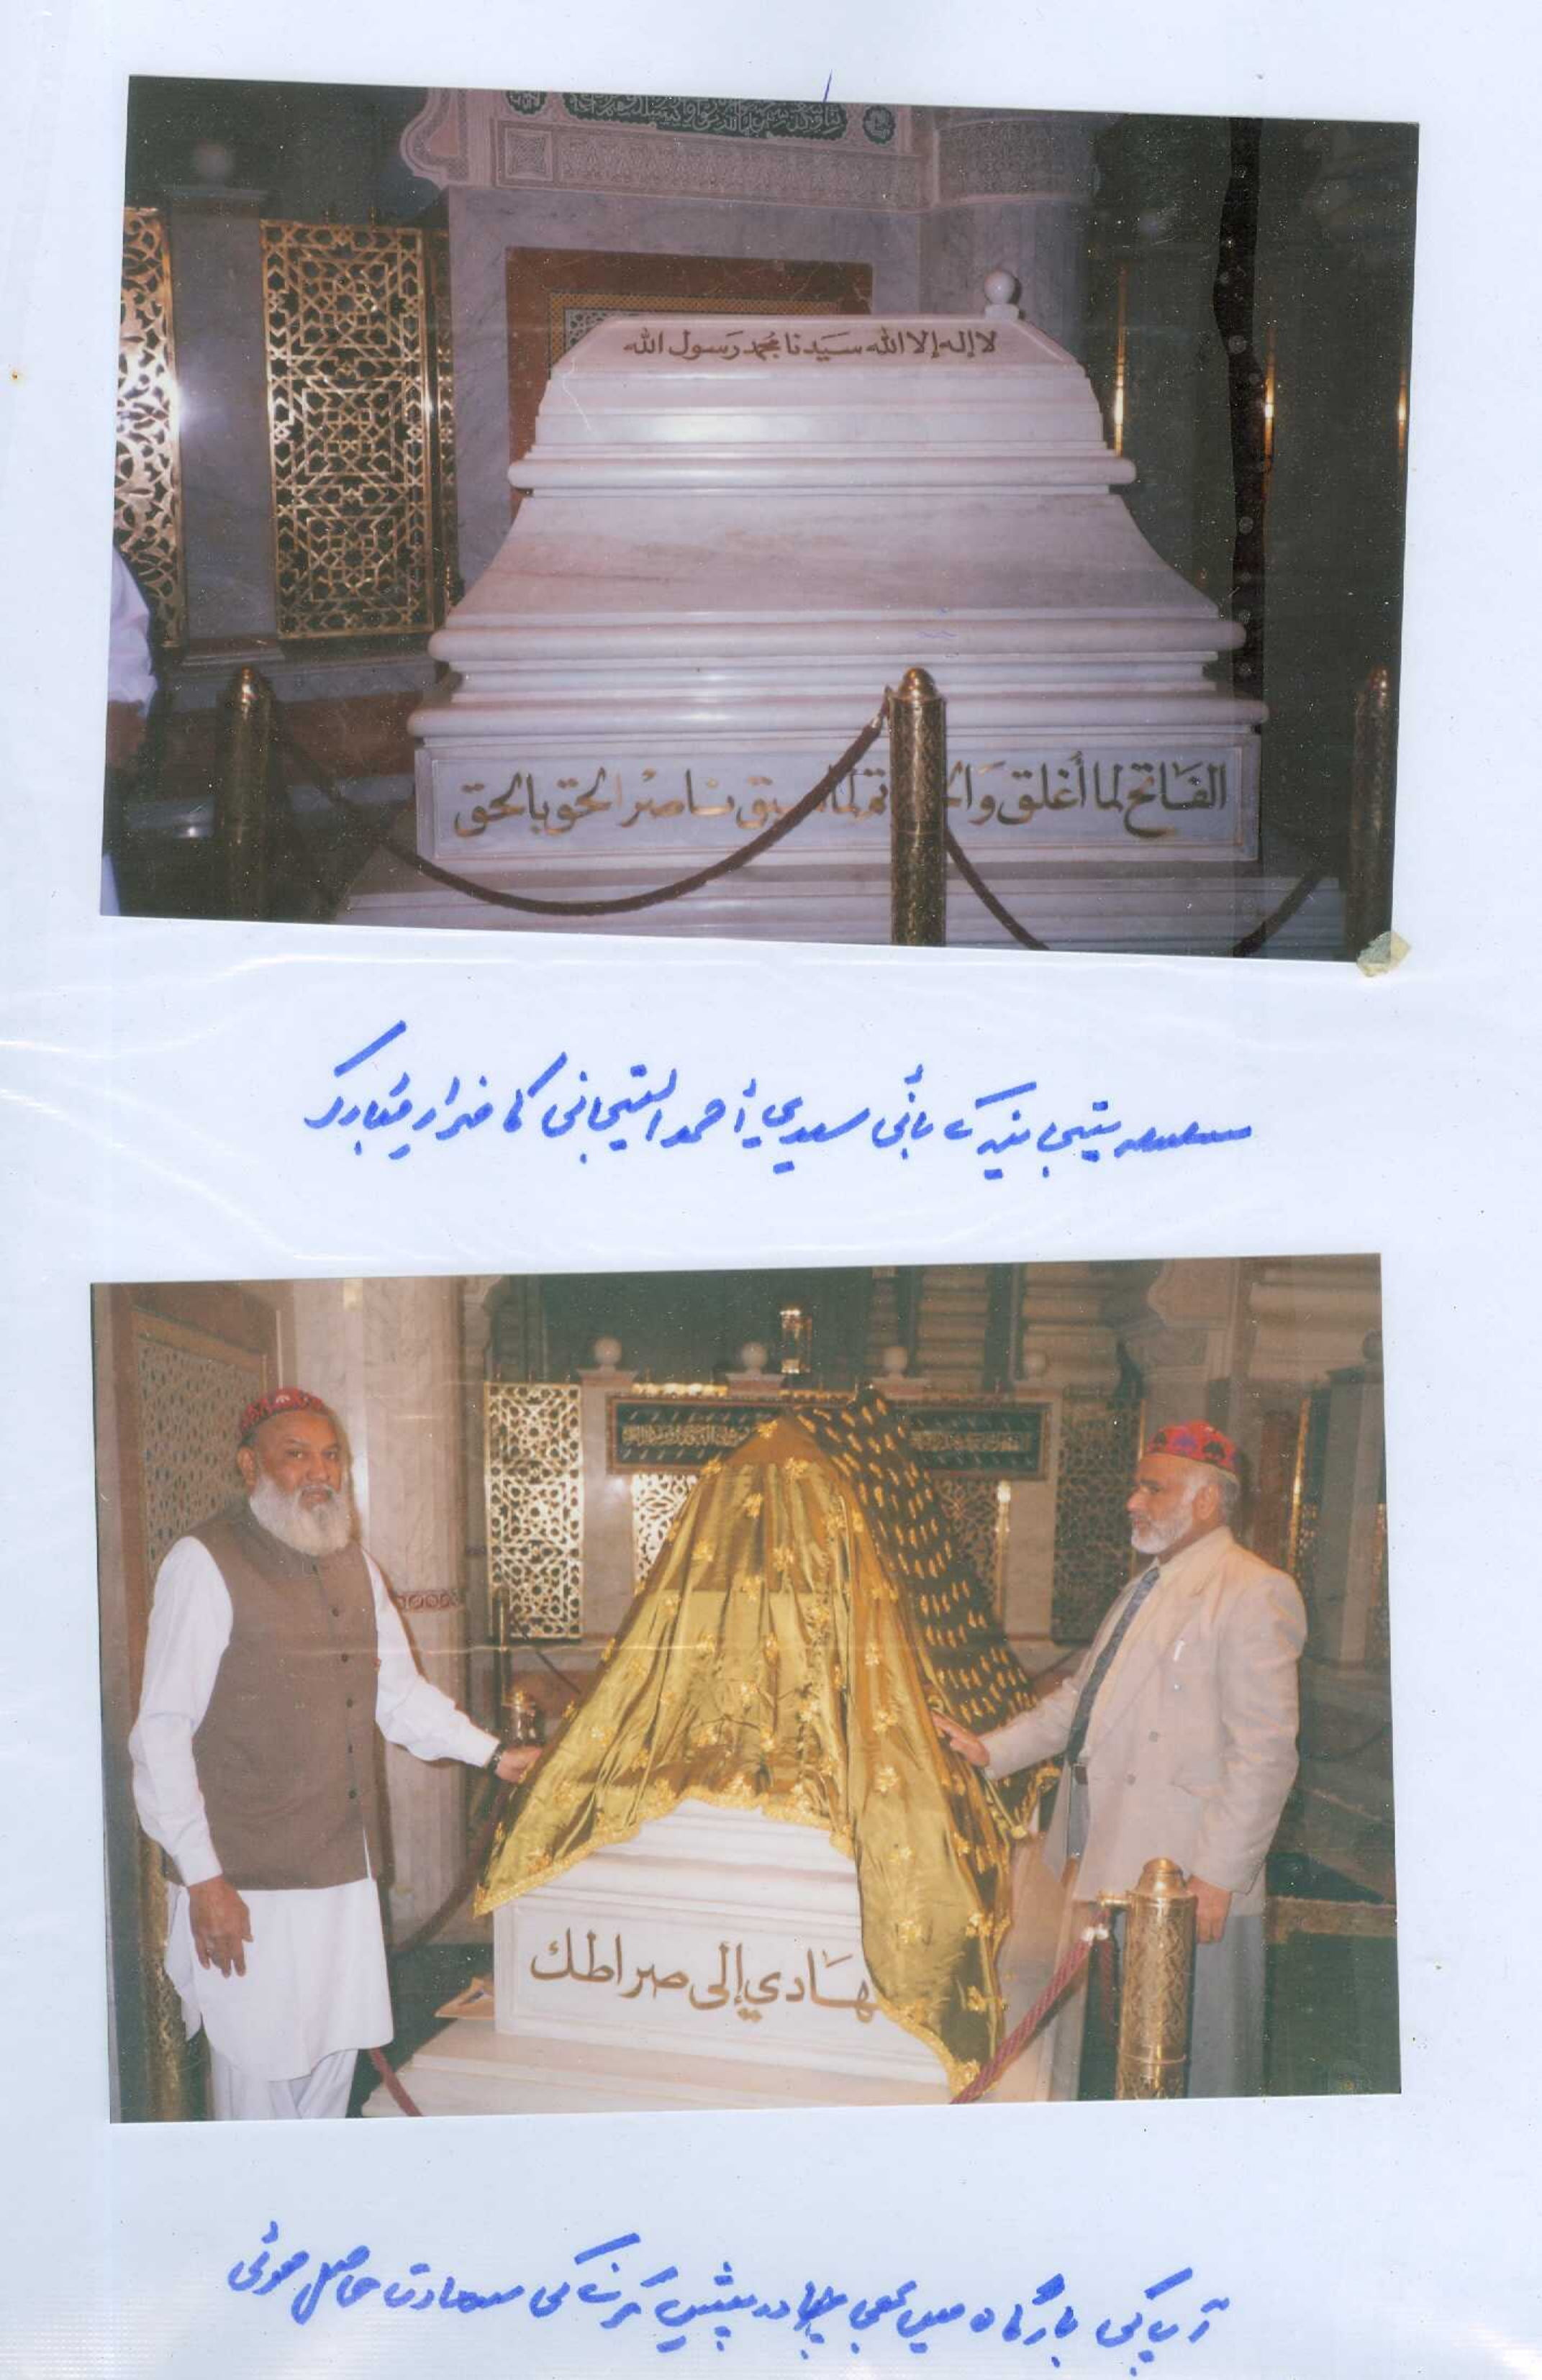 لا إله إلا الله سَيّدنا محمد رَسول الله
الفَاتح لما أُغلق وَالخاتم لما سبق نَاصر الحق بالحق
سلسلہ تیجانیہ کے بانی سیدي أحمد التیجانی کا مزار مبارک
هَادي إلى صراطك
آپ کی بارگاہ میں بھی چادر پیش کرنے کی سعادت حاصل ہوئی